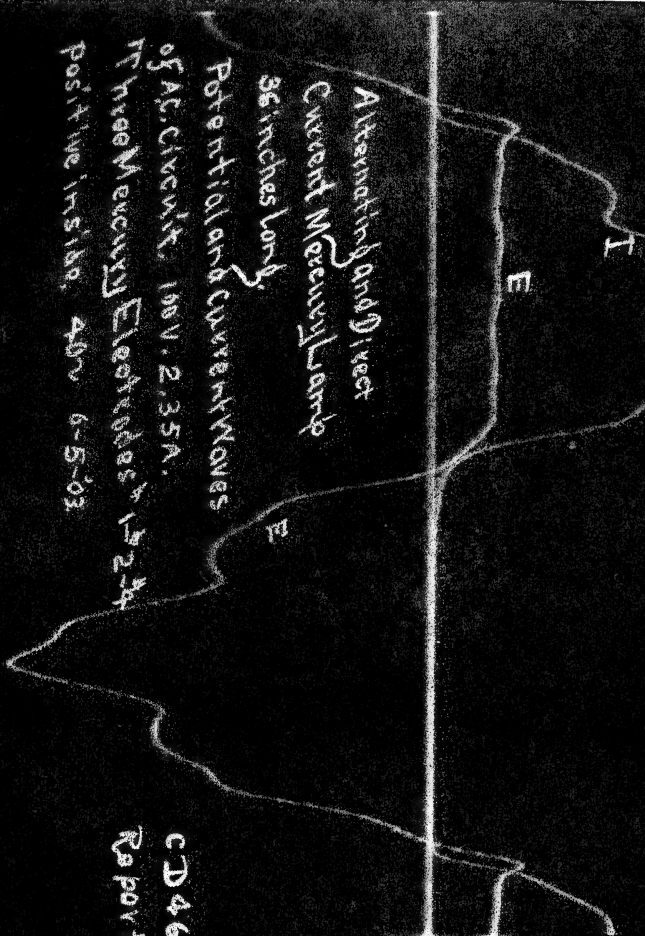 I
E
Alternating and Direct
Current Mercury Lamp
36 inches Long.
Potential and Current Waves
of A.C. Circuit. 100 V. 2.35 A.
Three Mercury Electrodes +
positive inside. 40~ 6-5-'03
E
CD46
Repor